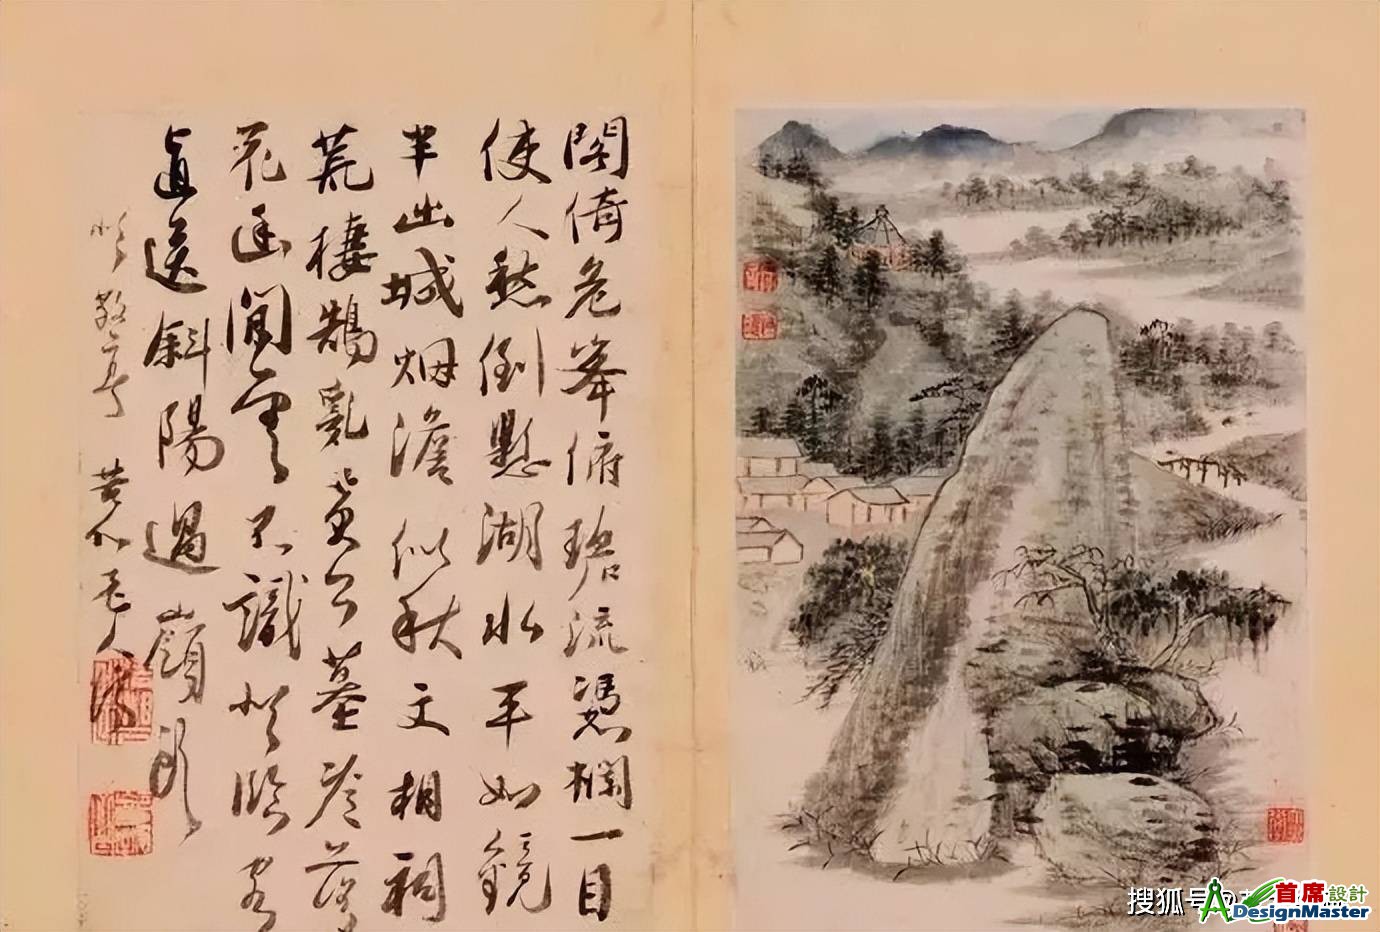 閣倚危峯俯碧流憑欄一目
使人愁倒懸湖水平如鏡
半出城烟澹似秋文相祠
荒棲鵲亂黃公墓冷落
花幽閒雲不識登臨客
直送斜陽過嶺頭
登敬亭 苦瓜老人濟
搜狐号@
首席設計
DesignMaster